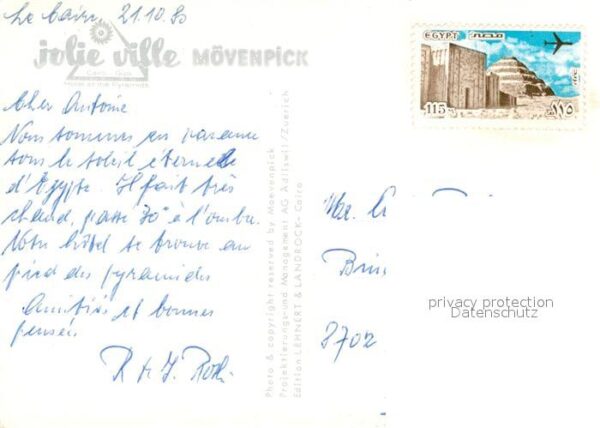 Le Caire 21.10.80
jolie ville MÖVENPICK
Cairo
Hotel at the Pyramids
Cher Antoine
Nous sommes en vacances
sous le soleil éternel
d'Egypte. Il fait très
chaud, passé 30° à l'ombre.
Notre hôtel se trouve au
pied des pyramides
Amitiés et bonnes
pensées
R & J. Roth
Photo & copyright reserved by Moevenpick
Projektierungs-und Management AG Adliswil/Zuerich
Edition LEHNERT & LANDROCK - Cairo
EGYPT مصر
115 ١١٥
8702
privacy protection
Datenschutz